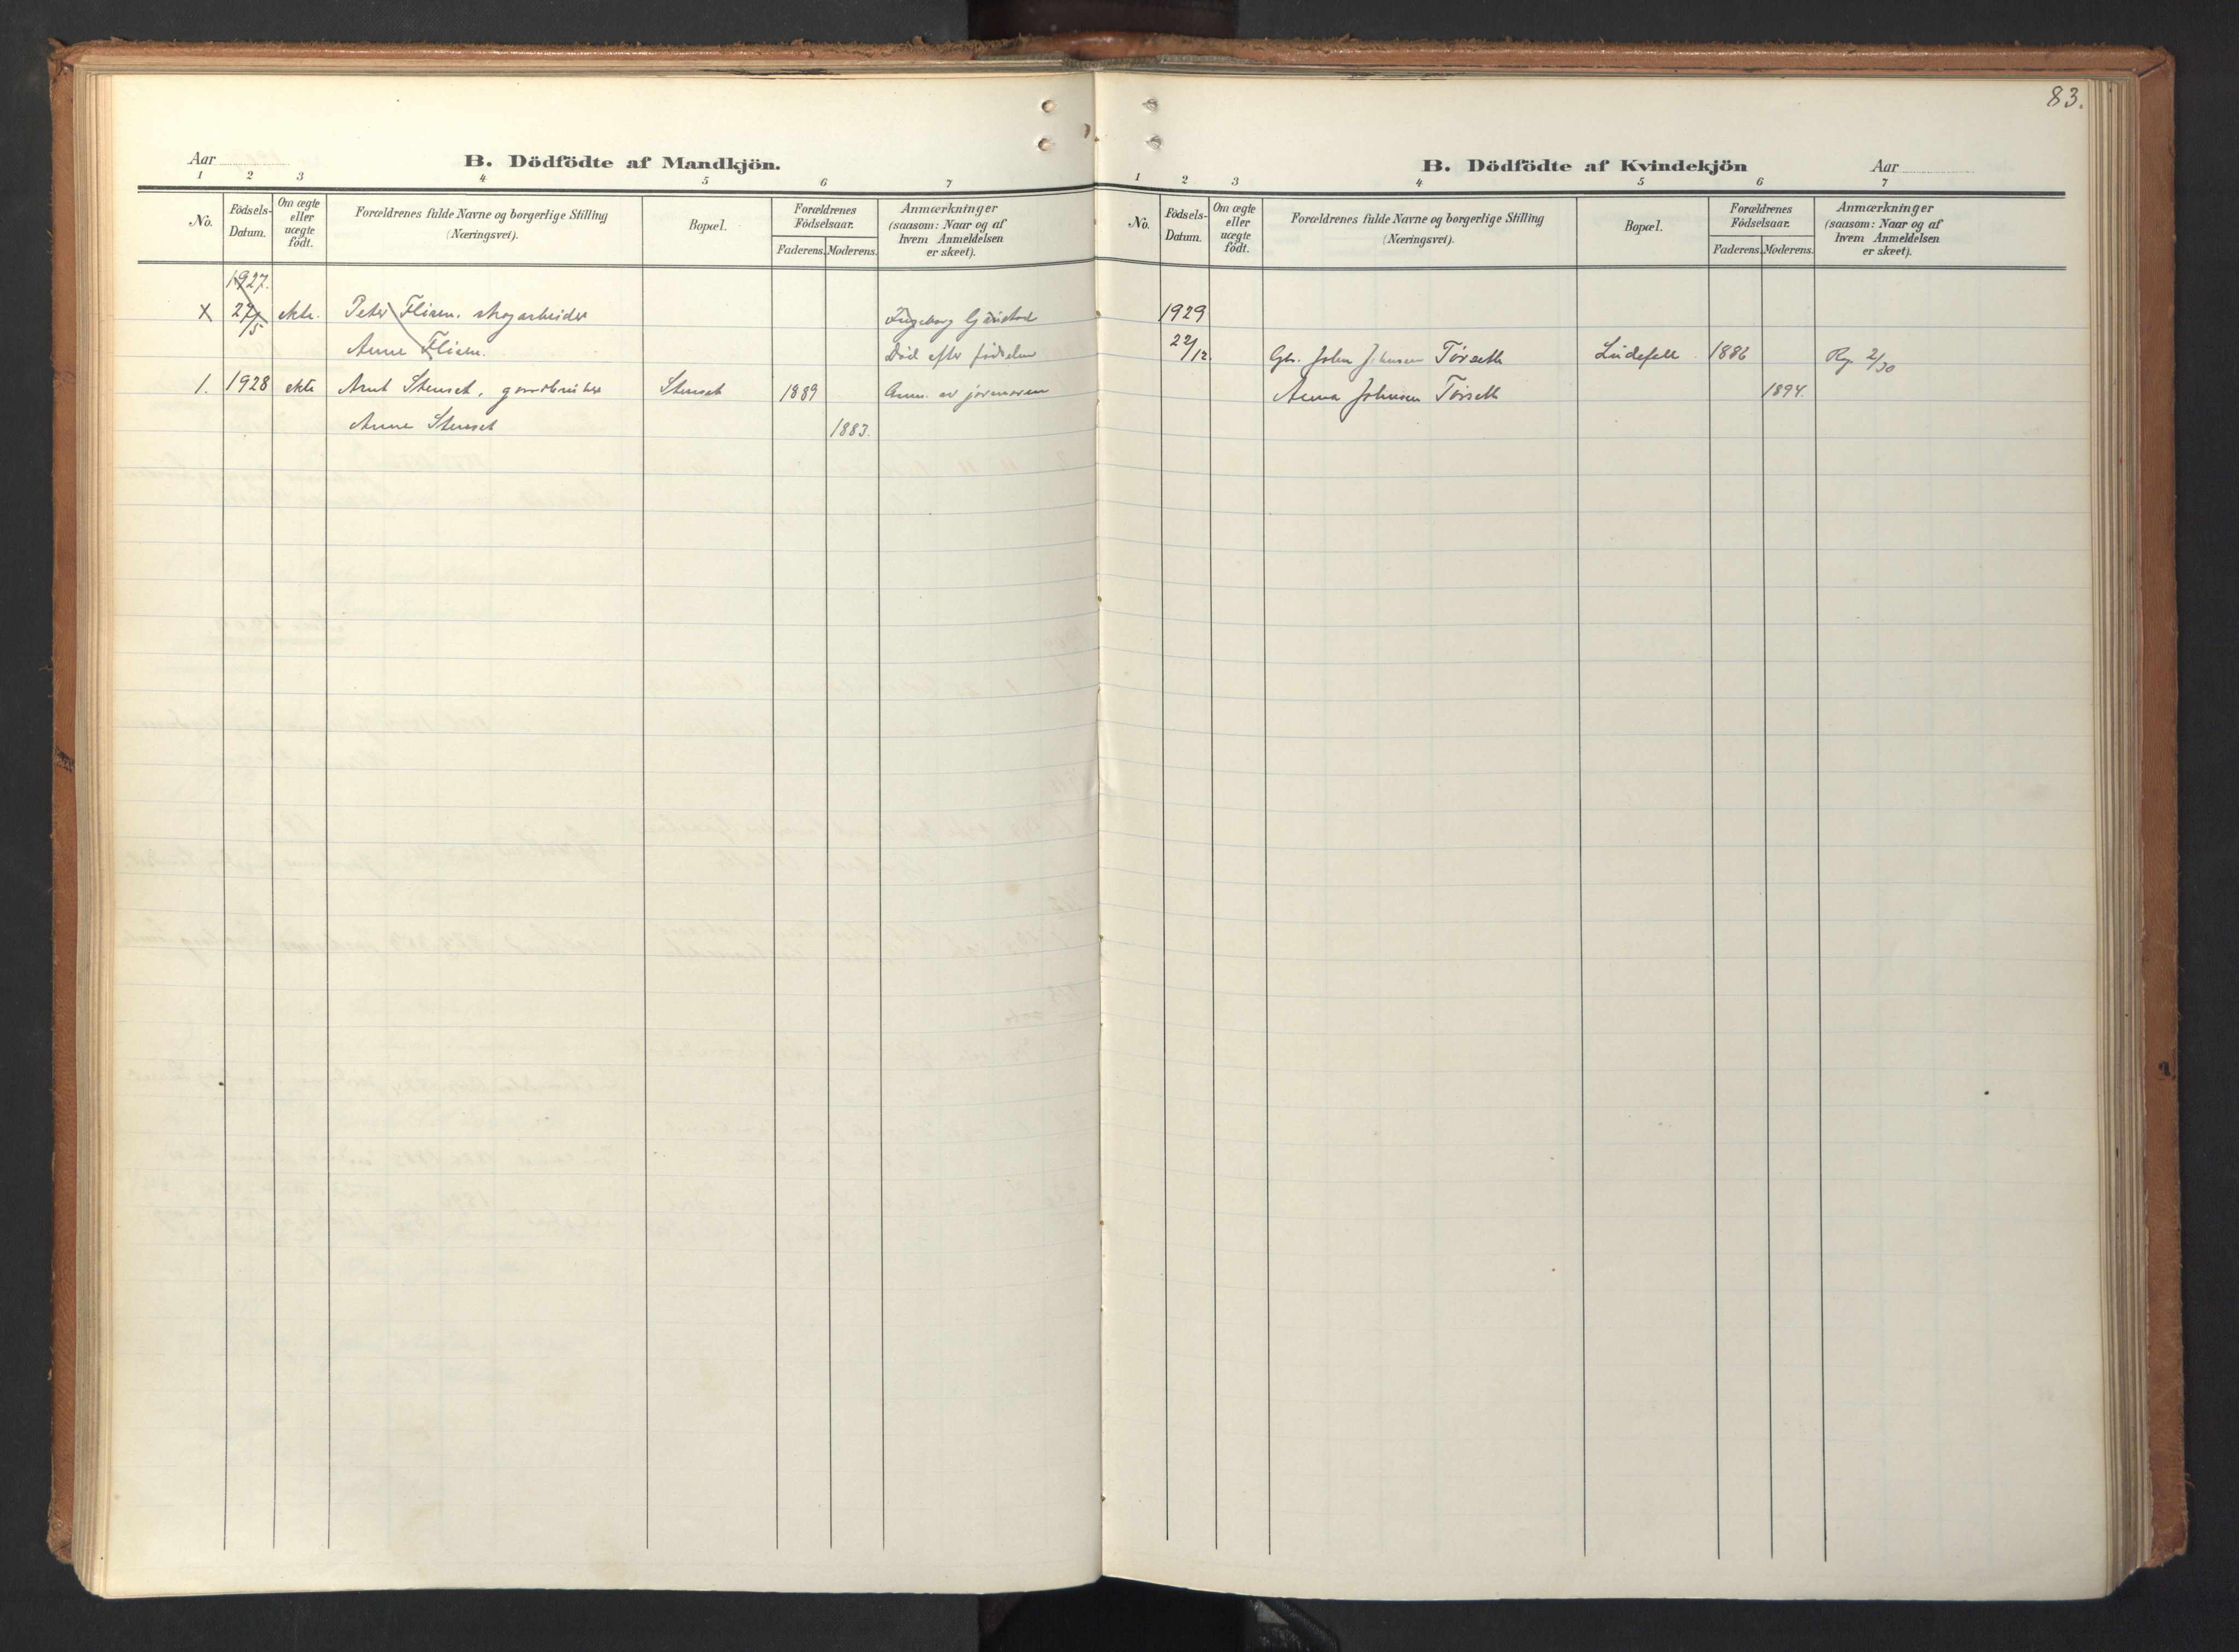 83.
Aar
B. Dödfödte af Mandkjön.
1 2 3 4 5 6 7
No.
Födsels-
Datum.
Om ægte
eller
uægte
födt.
Forældrenes fulde Navne og borgerlige Stilling
(Næringsvei).
Bopæl.
Forældrenes
Födselsaar.
Faderens. Moderens.
Anmærkninger
(saasom: Naar og af
hvem Anmeldelsen
er skeet).
1927.
X 27/5 ekte. Peter Flisen, skogarbeider Ingeborg
Anne Flisen. Død efter fødselen
1. 1928 ekte Arnt Stenset, gaardbruker Stenset 1889 Anm. av jormoren
Anne Stenset 1883.
B. Dödfödte af Kvindekjön
Aar
1 2 3 4 5 6 7
No.
Födsels-
Datum.
Om ægte
eller
uægte
födt.
Forældrenes fulde Navne og borgerlige Stilling
(Næringsvei).
Bopæl.
Forældrenes
Födselsaar.
Faderens. Moderens.
Anmærkninger
(saasom: Naar og af
hvem Anmeldelsen
er skeet).
1929
22/12 Gbr. John Johnsen Törseth 1886 2/30
Anna Johnsen Törseth 1894.